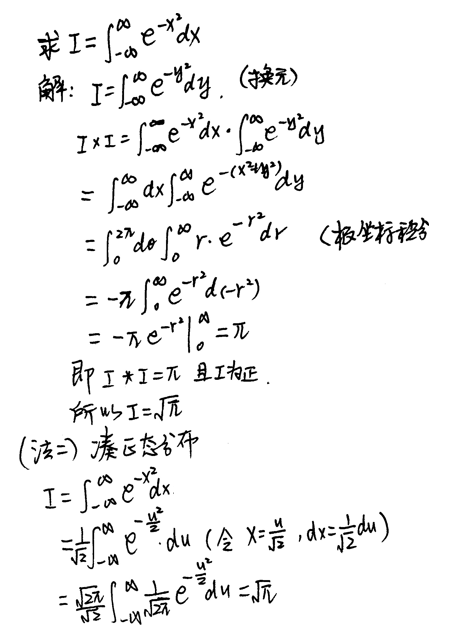 求 I=∫_{-∞}^{∞} e^{-x²}dx
解: I=∫_{-∞}^{∞} e^{-y²}dy. (换元)
I×I=∫_{-∞}^{∞} e^{-x²}dx·∫_{-∞}^{∞} e^{-y²}dy
=∫_{-∞}^{∞} dx∫_{-∞}^{∞} e^{-(x²+y²)}dy
=∫_{0}^{2π} dθ∫_{0}^{∞} r·e^{-r²}dr (极坐标积分
=-π∫_{0}^{∞} e^{-r²}d(-r²)
=-πe^{-r²}|_{0}^{∞}=π
即 I*I=π 且I为正.
所以 I=√π
(法二) 凑正态分布
I=∫_{-∞}^{∞} e^{-x²}dx
=\frac{1}{√2}∫_{-∞}^{∞} e^{-\frac{u²}{2}}·du (令 x=\frac{u}{√2}, dx=\frac{1}{√2}du)
=\frac{√2π}{√2}∫_{-∞}^{∞} \frac{1}{√2π} e^{-\frac{u²}{2}}du=√π